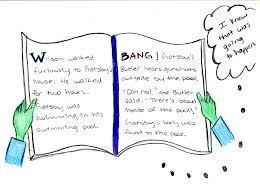 Wilson walked
furiously to Gatsby's
house. He walked
for two hours.
Gatsby was
swimming in his
swimming pool.
BANG! Gatsby's
Butler hears gunshots
outside by the pool.
"Oh no!" the Butler
said, "There's blood
inside of the pool."
Gatsby's body was
found in the pool.
I knew
that was
going to
happen.